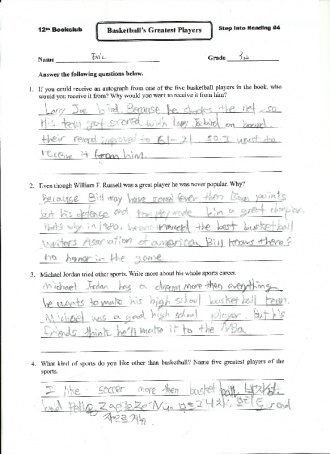 12th Bookclub Basketball's Greatest Players Step Into Reading #4
Name Eric Grade 3rd
Answer the following questions below.
1. If you could receive an autograph from one of the five basketball players in the book, who
would you receive it from? Why would you want to receive it from him?
Larry Joe bird. Because he shoots the net so
His team got scored with Larry Bird on board
their record improved to 61-21. so I want to
receive it from him.
2. Even though William F. Russell was a great player he was never popular. Why?
Because Bill may have some fewer then points
but his defense and made him a great champion.
that's why in 1980, he was named the best basketball
writers Association of american. Bill knows there's
no honor in the game
3. Michael Jordan tried other sports. Write more about his whole sports career.
Michael Jordan has a dream more than everything
he wants to make his high school basketball team.
Michael was a good high school player but his
friends think he'll make it to the NBA.
4. What kind of sports do you like other than basketball? Name five greatest players of the
sports.
I like soccer more then basket ball.